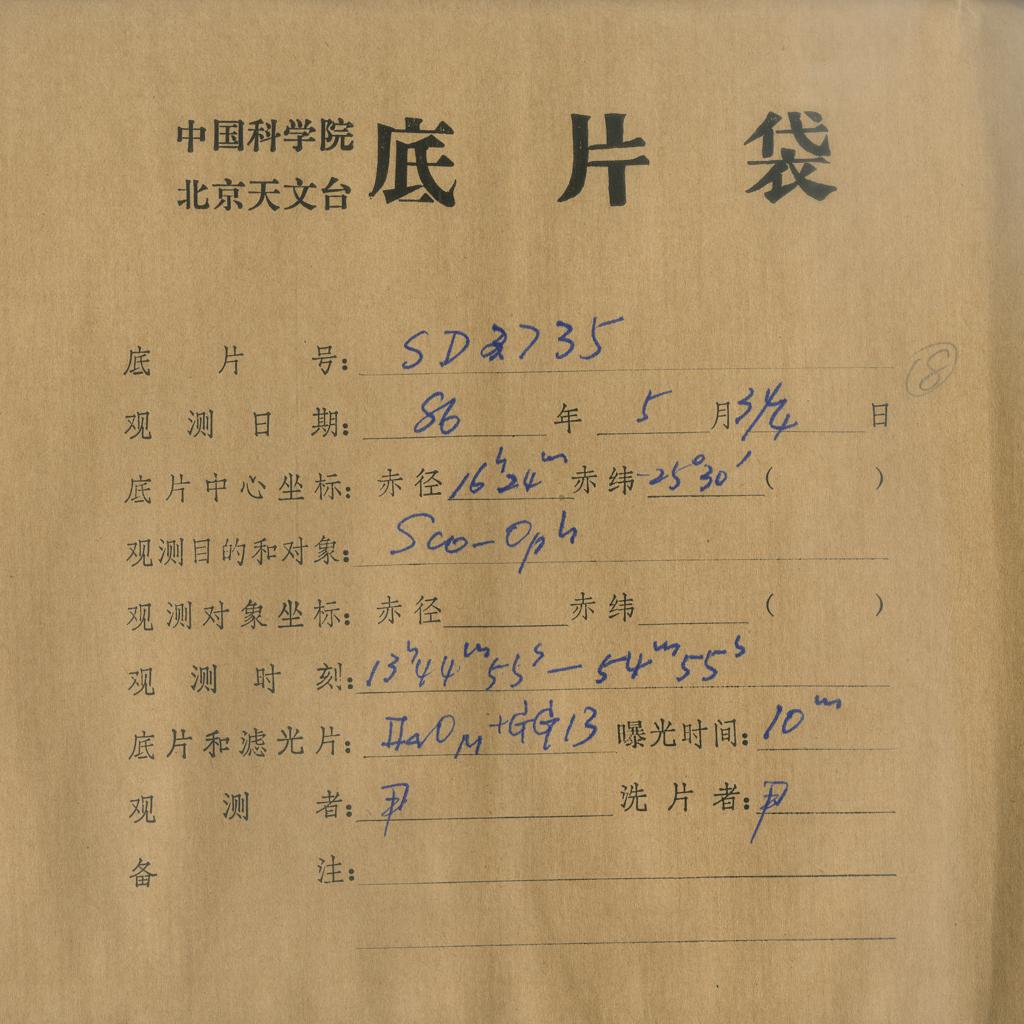 中国科学院
北京天文台
底片袋
底片号：SD3735
⑧
观测日期：86年5月3/4日
底片中心坐标：赤径16h24m赤纬-25°30′（ ）
观测目的和对象：Sco-Oph
观测对象坐标：赤径 赤纬 （ ）
观测时刻：13h44m55s—54m55s
底片和滤光片：IIaO +GG13 曝光时间：10m
观测者：尹 洗片者：尹
备注：